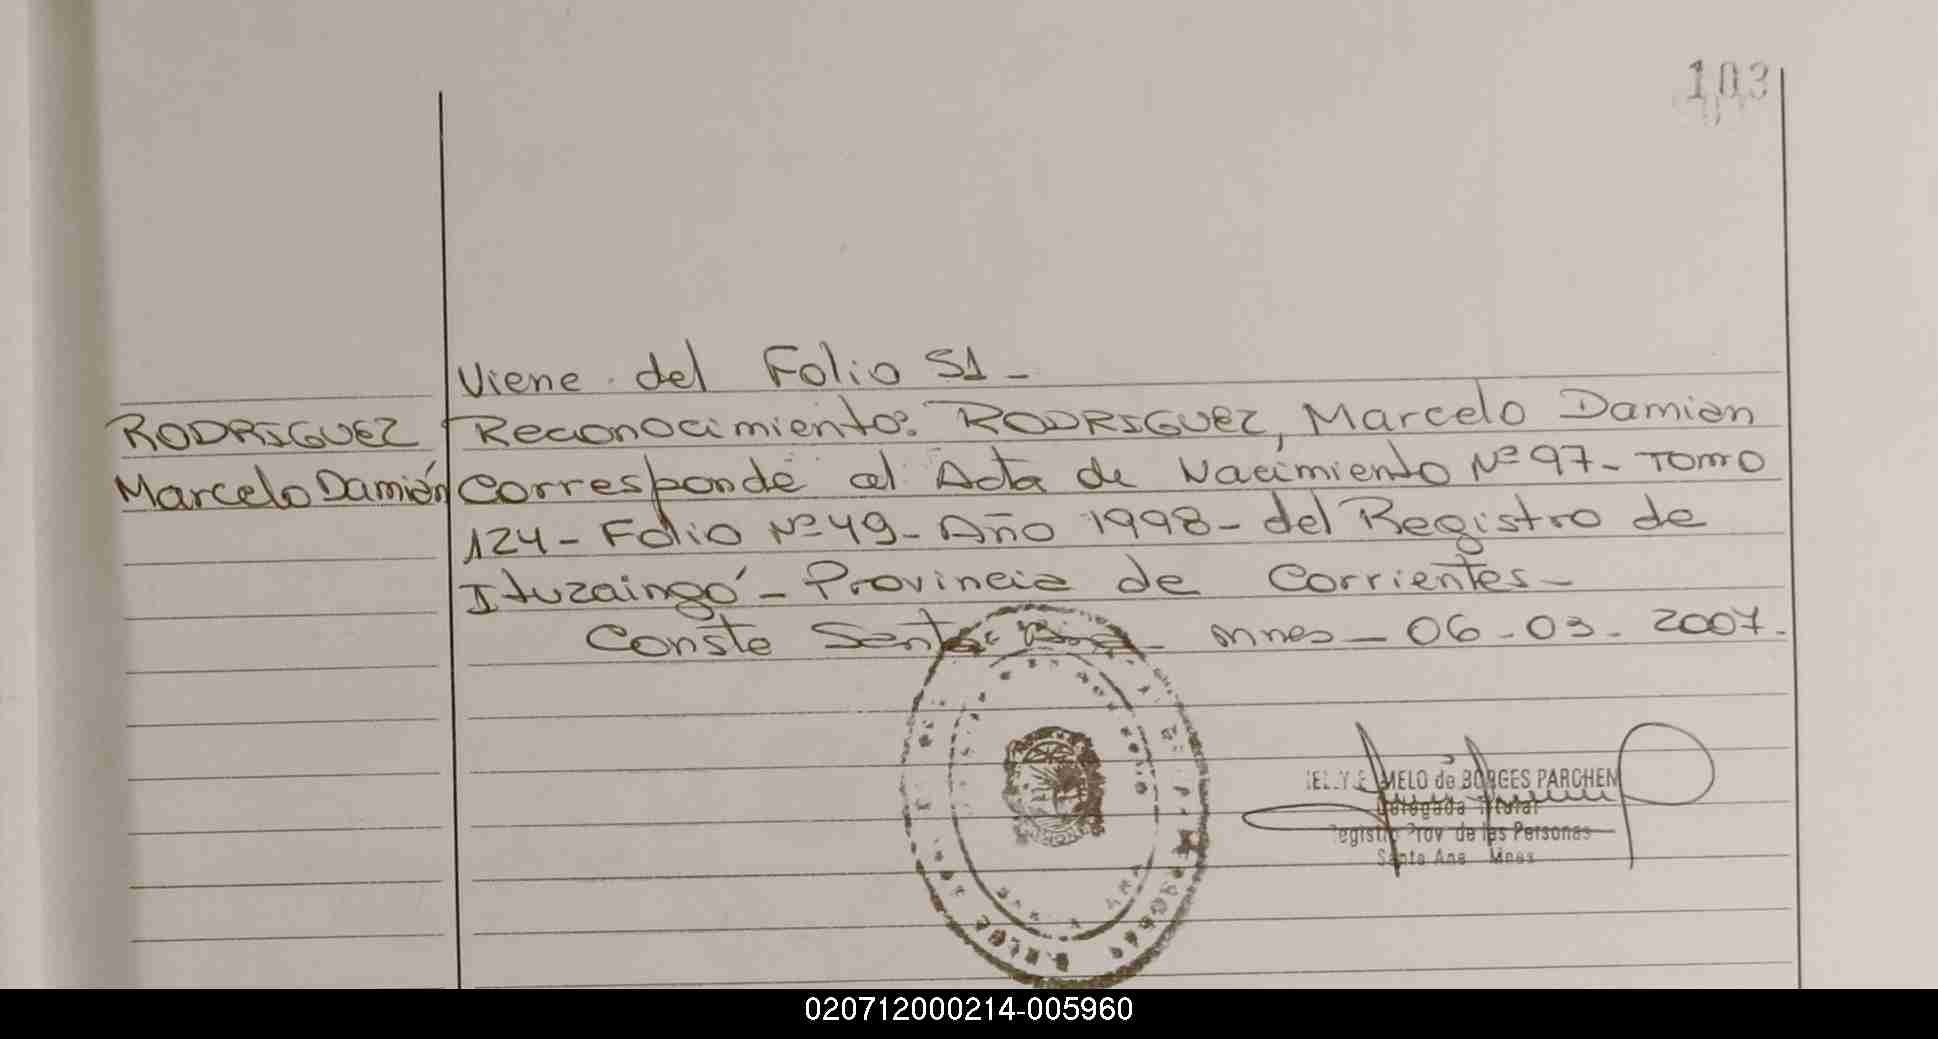 103
Viene del Folio 51-
RODRIGUEZ
Marcelo Damián
Reconocimiento: RODRIGUEZ, Marcelo Damian
Corresponde al Acta de Nacimiento Nº 97- Tomo
124- Folio Nº 49- Año 1998- del Registro de
Ituzaingó- Provincia de Corrientes-
Conste Santa Ana- Mnes- 06-03-2007.
MELO de BORGES PARCHEN
Delegada Titular
Registro Prov de las Personas
Santa Ana Mnes
020712000214-005960